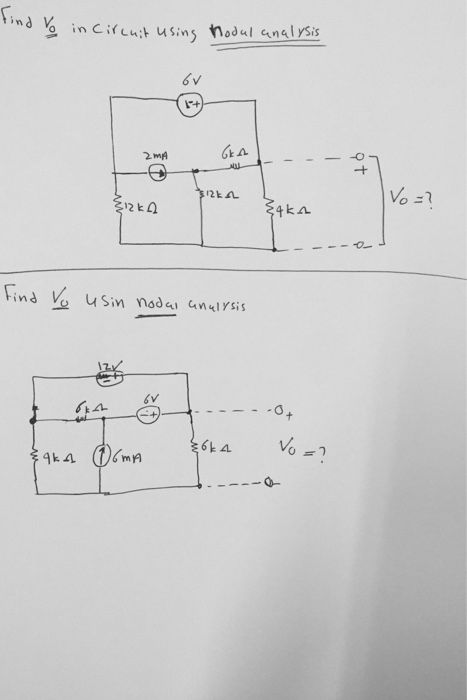 Find Vo in Circuit using Nodal analysis
6V
- +
2mA
6kΩ
12kΩ
12kΩ
4kΩ
+
-
Vo = ?
Find Vo usin nodal analysis
12V
- +
6kΩ
6V
- +
+
9kΩ
6mA
6kΩ
Vo = ?
-